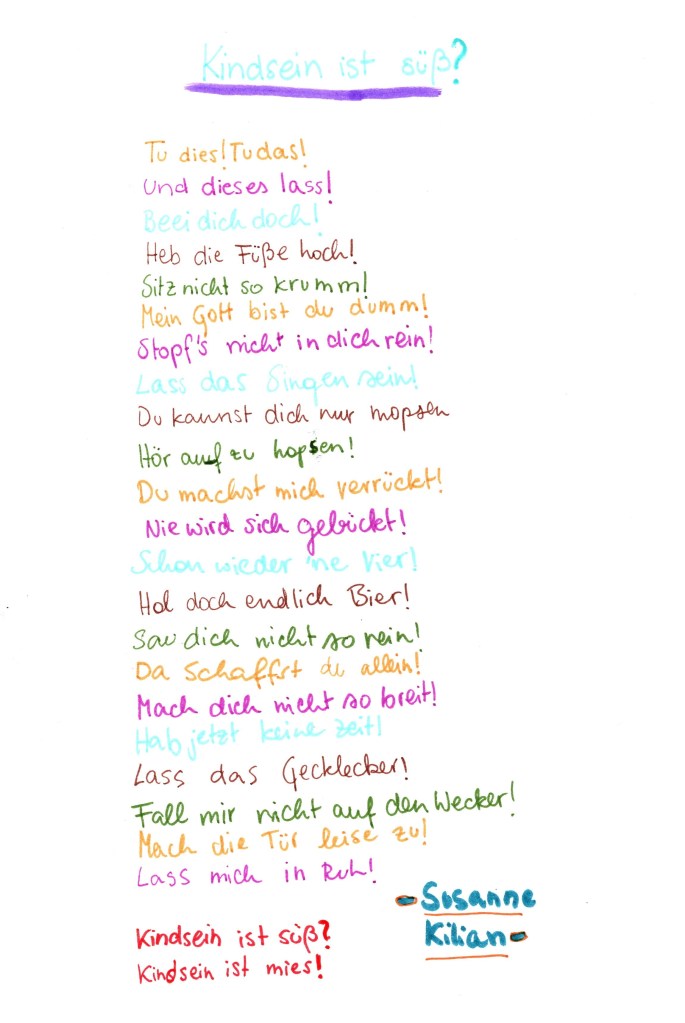 Kindsein ist süß?
Tu dies! Tu das!
Und dieses lass!
Beei dich doch!
Heb die Füße hoch!
Sitz nicht so krumm!
Mein Gott bist du dumm!
Stopf's nicht in dich rein!
Lass das Singen sein!
Du kannst dich nur mopsen
Hör auf zu hopsen!
Du machst mich verrückt!
Nie wird sich gebückt!
Schon wieder 'ne Vier!
Hol doch endlich Bier!
Sau dich nicht so rein!
Da schaffst du allein!
Mach dich nicht so breit!
Hab jetzt keine Zeit!
Lass das Gecklecker!
Fall mir nicht auf den Wecker!
Mach die Tür leise zu!
Lass mich in Ruh!
Kindsein ist süß?
Kindsein ist mies!
Susanne
Kilian